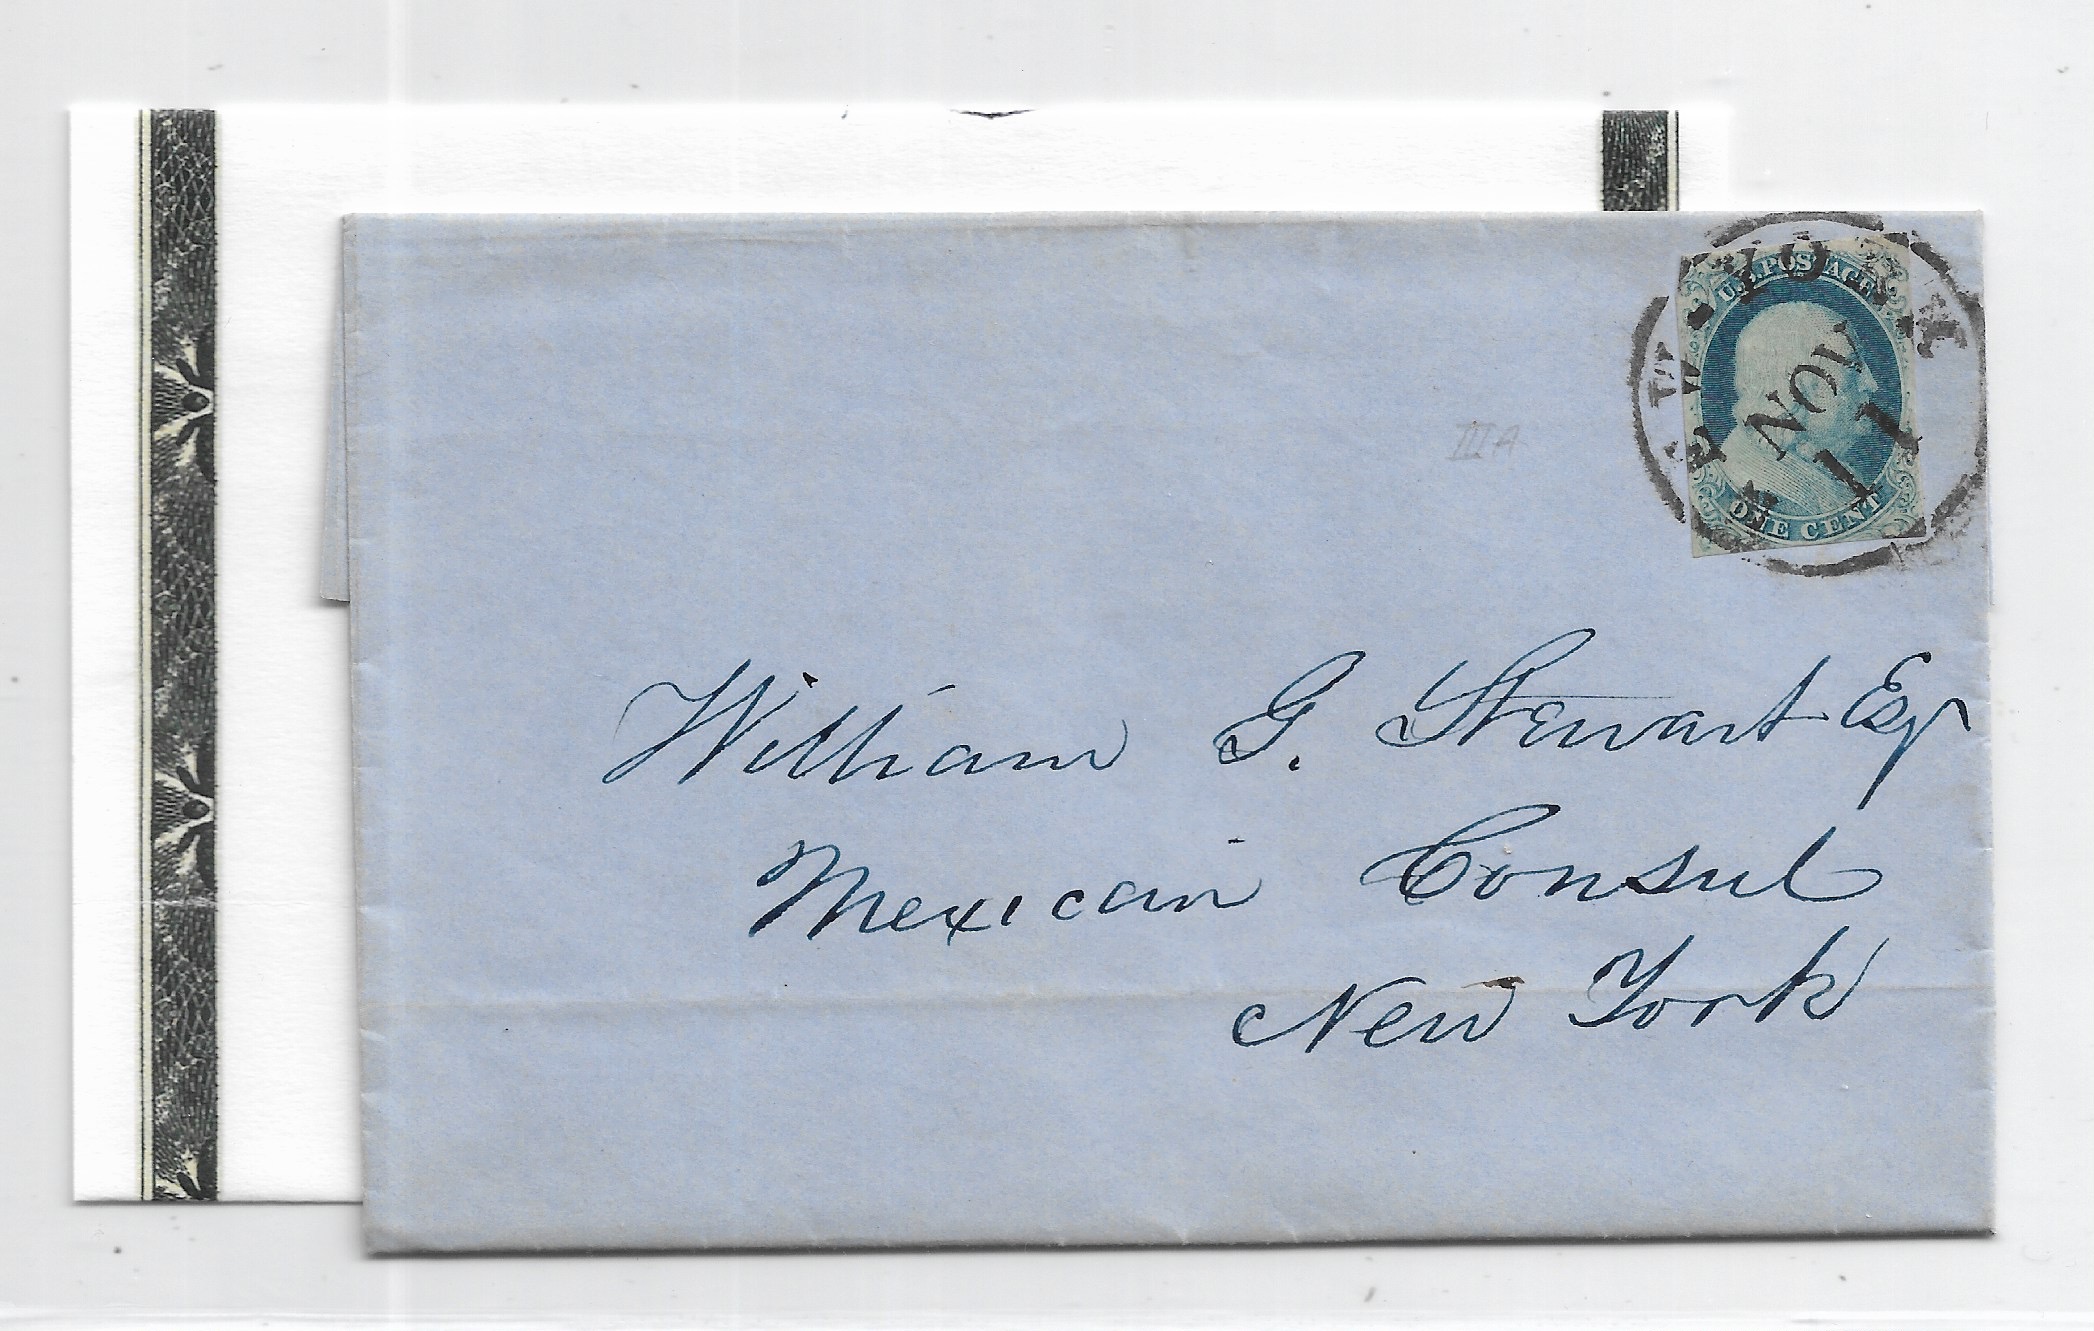 NEW YORK
NOV
11
U.S. POSTAGE
ONE CENT
IIIA
William G. Stewart Esqr
Mexican Consul
New York